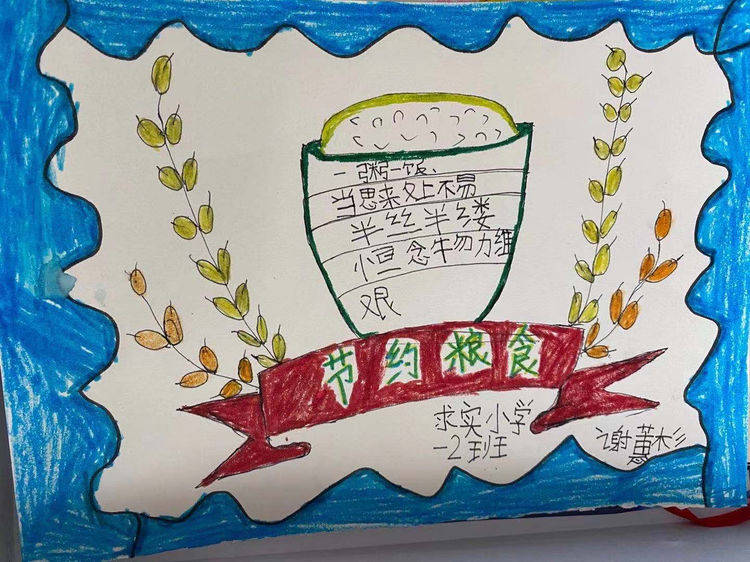 一粥一饭、
当思来处不易
半丝半缕
恒念物力维
艰
节约粮食
求实小学
一2班
谢蕙杉